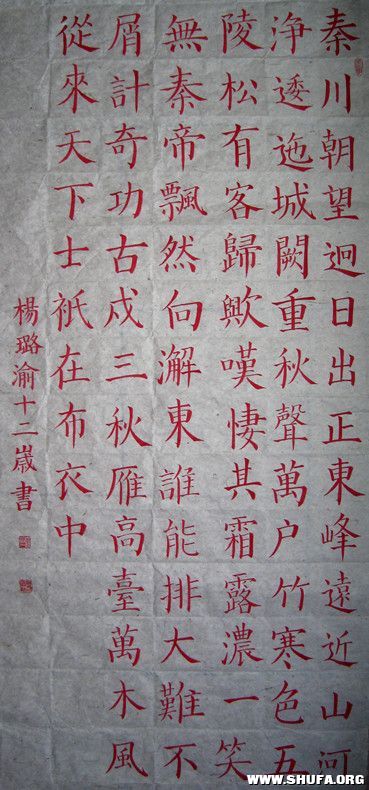 秦川朝望迥日出正東峰遠近山河
淨逶迤城闕重秋聲萬户竹寒色五
陵松有客歸歟嘆悽其霜露濃一笑
無秦帝飄然向澥東誰能排大難不
屑計奇功古戍三秋雁高臺萬木風
從來天下士衹在布衣中
楊璐渝十二歲書
WWW.SHUFA.ORG